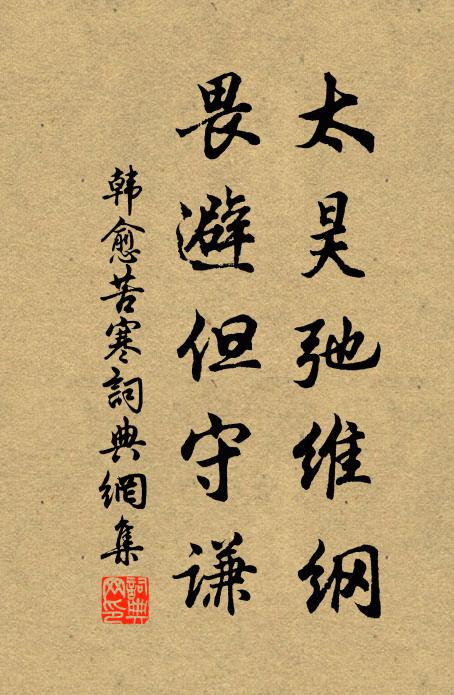 太昊弛维纲
畏避但守谦
韩愈苦寒詞典網集
詞典网印